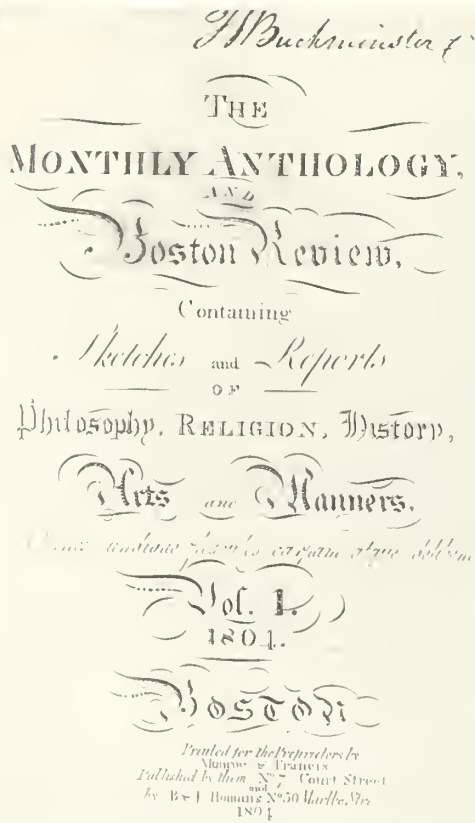 Buckminster
THE
MONTHLY ANTHOLOGY,
AND
Boston Review,
Containing
Sketches and Reports
OF
Philosophy, RELIGION, History,
Arts and Manners.
Vol. I.
1804.
BOSTON
Printed for the Proprietors by
Munroe & Francis
Published by them No 7 Court Street
and
by B & J Homans No 50 Marlbo. Stre
1804